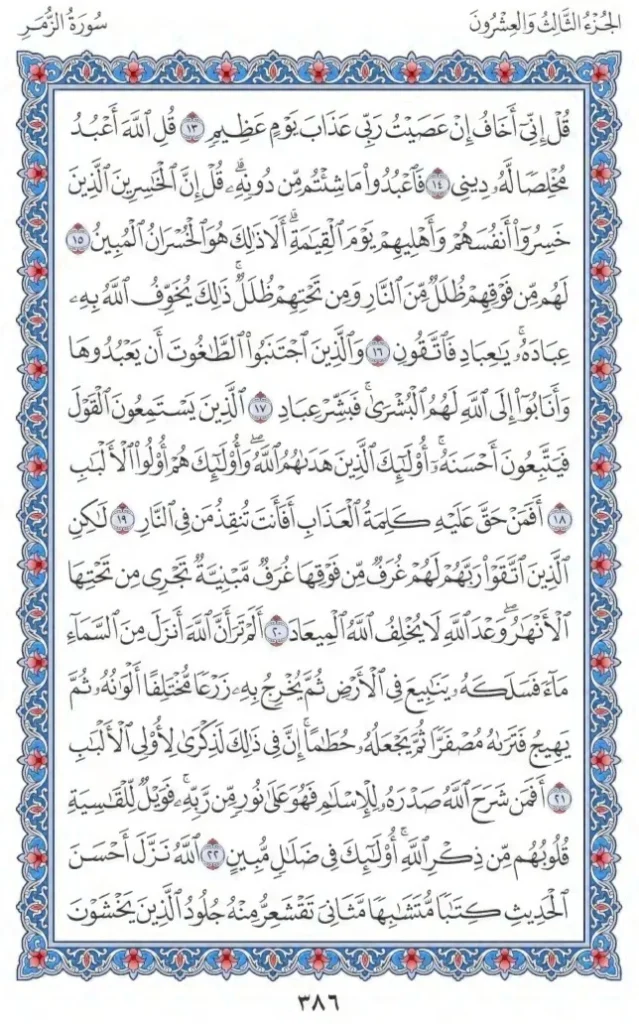 الجُزْءُ الثَّالِثُ وَالعِشْرُونَ
سُورَةُ الزُّمَرِ
قُلْ إِنِّيٓ أَخَافُ إِنْ عَصَيْتُ رَبِّي عَذَابَ يَوْمٍ عَظِيمٖ ١٣ قُلِ ٱللَّهَ أَعۡبُدُ
مُخۡلِصٗا لَّهُۥ دِينِي ١٤ فَٱعۡبُدُواْ مَا شِئۡتُم مِّن دُونِهِۦۗ قُلۡ إِنَّ ٱلۡخَٰسِرِينَ ٱلَّذِينَ
خَسِرُوٓاْ أَنفُسَهُمۡ وَأَهۡلِيهِمۡ يَوۡمَ ٱلۡقِيَٰمَةِۗ أَلَا ذَٰلِكَ هُوَ ٱلۡخُسۡرَانُ ٱلۡمُبِينُ ١٥
لَهُم مِّن فَوۡقِهِمۡ ظُلَلٞ مِّنَ ٱلنَّارِ وَمِن تَحۡتِهِمۡ ظُلَلٞۚ ذَٰلِكَ يُخَوِّفُ ٱللَّهُ بِهِۦ
عِبَادَهُۥۚ يَٰعِبَادِ فَٱتَّقُونِ ١٦ وَٱلَّذِينَ ٱجۡتَنَبُواْ ٱلطَّٰغُوتَ أَن يَعۡبُدُوهَا
وَأَنَابُوٓاْ إِلَى ٱللَّهِ لَهُمُ ٱلۡبُشۡرَىٰۚ فَبَشِّرۡ عِبَادِ ١٧ ٱلَّذِينَ يَسۡتَمِعُونَ ٱلۡقَوۡلَ
فَيَتَّبِعُونَ أَحۡسَنَهُۥٓۚ أُوْلَٰٓئِكَ ٱلَّذِينَ هَدَىٰهُمُ ٱللَّهُۖ وَأُوْلَٰٓئِكَ هُمۡ أُوْلُواْ ٱلۡأَلۡبَٰبِ
١٨ أَفَمَنۡ حَقَّ عَلَيۡهِ كَلِمَةُ ٱلۡعَذَابِ أَفَأَنتَ تُنقِذُ مَن فِي ٱلنَّارِ ١٩ لَٰكِنِ
ٱلَّذِينَ ٱتَّقَوۡاْ رَبَّهُمۡ لَهُمۡ غُرَفٞ مِّن فَوۡقِهَا غُرَفٞ مَّبۡنِيَّةٞ تَجۡرِي مِن تَحۡتِهَا
ٱلۡأَنۡهَٰرُۖ وَعۡدَ ٱللَّهِ لَا يُخۡلِفُ ٱللَّهُ ٱلۡمِيعَادَ ٢٠ أَلَمۡ تَرَ أَنَّ ٱللَّهَ أَنزَلَ مِنَ ٱلسَّمَآءِ
مَآءٗ فَسَلَكَهُۥ يَنَٰبِيعَ فِي ٱلۡأَرۡضِ ثُمَّ يُخۡرِجُ بِهِۦ زَرۡعٗا مُّخۡتَلِفًا أَلۡوَٰنُهُۥ ثُمَّ
يَهِيجُ فَتَرَىٰهُ مُصۡفَرّٗا ثُمَّ يَجۡعَلُهُۥ حُطَٰمًاۚ إِنَّ فِي ذَٰلِكَ لَذِكۡرَىٰ لِأُوْلِي ٱلۡأَلۡبَٰبِ
٢١ أَفَمَن شَرَحَ ٱللَّهُ صَدۡرَهُۥ لِلۡإِسۡلَٰمِ فَهُوَ عَلَىٰ نُورٖ مِّن رَّبِّهِۦۚ فَوَيۡلٞ لِّلۡقَٰسِيَةِ
قُلُوبُهُم مِّن ذِكۡرِ ٱللَّهِۚ أُوْلَٰٓئِكَ فِي ضَلَٰلٖ مُّبِينٍ ٢٢ ٱللَّهُ نَزَّلَ أَحۡسَنَ
ٱلۡحَدِيثِ كِتَٰبٗا مُّتَشَٰبِهٗا مَّثَانِيَ تَقۡشَعِرُّ مِنۡهُ جُلُودُ ٱلَّذِينَ يَخۡشَوۡنَ
٣٨٦